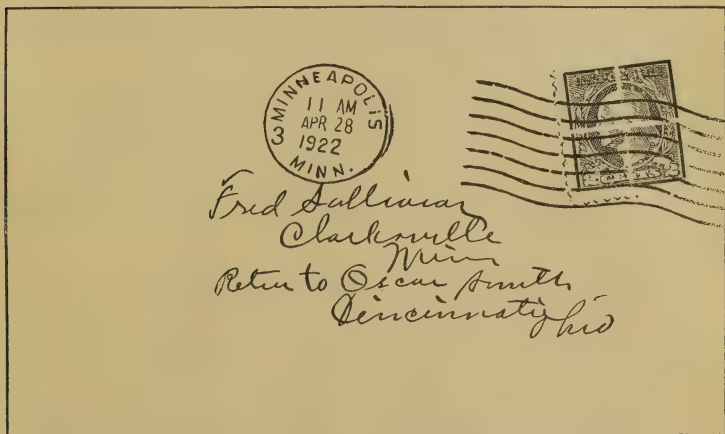 MINNEAPOLIS
11 AM
APR 28
3
1922
MINN.
Fred Sullivan
Clarksville
Minn
Return to Oscar Smith
Cincinnati Ohio